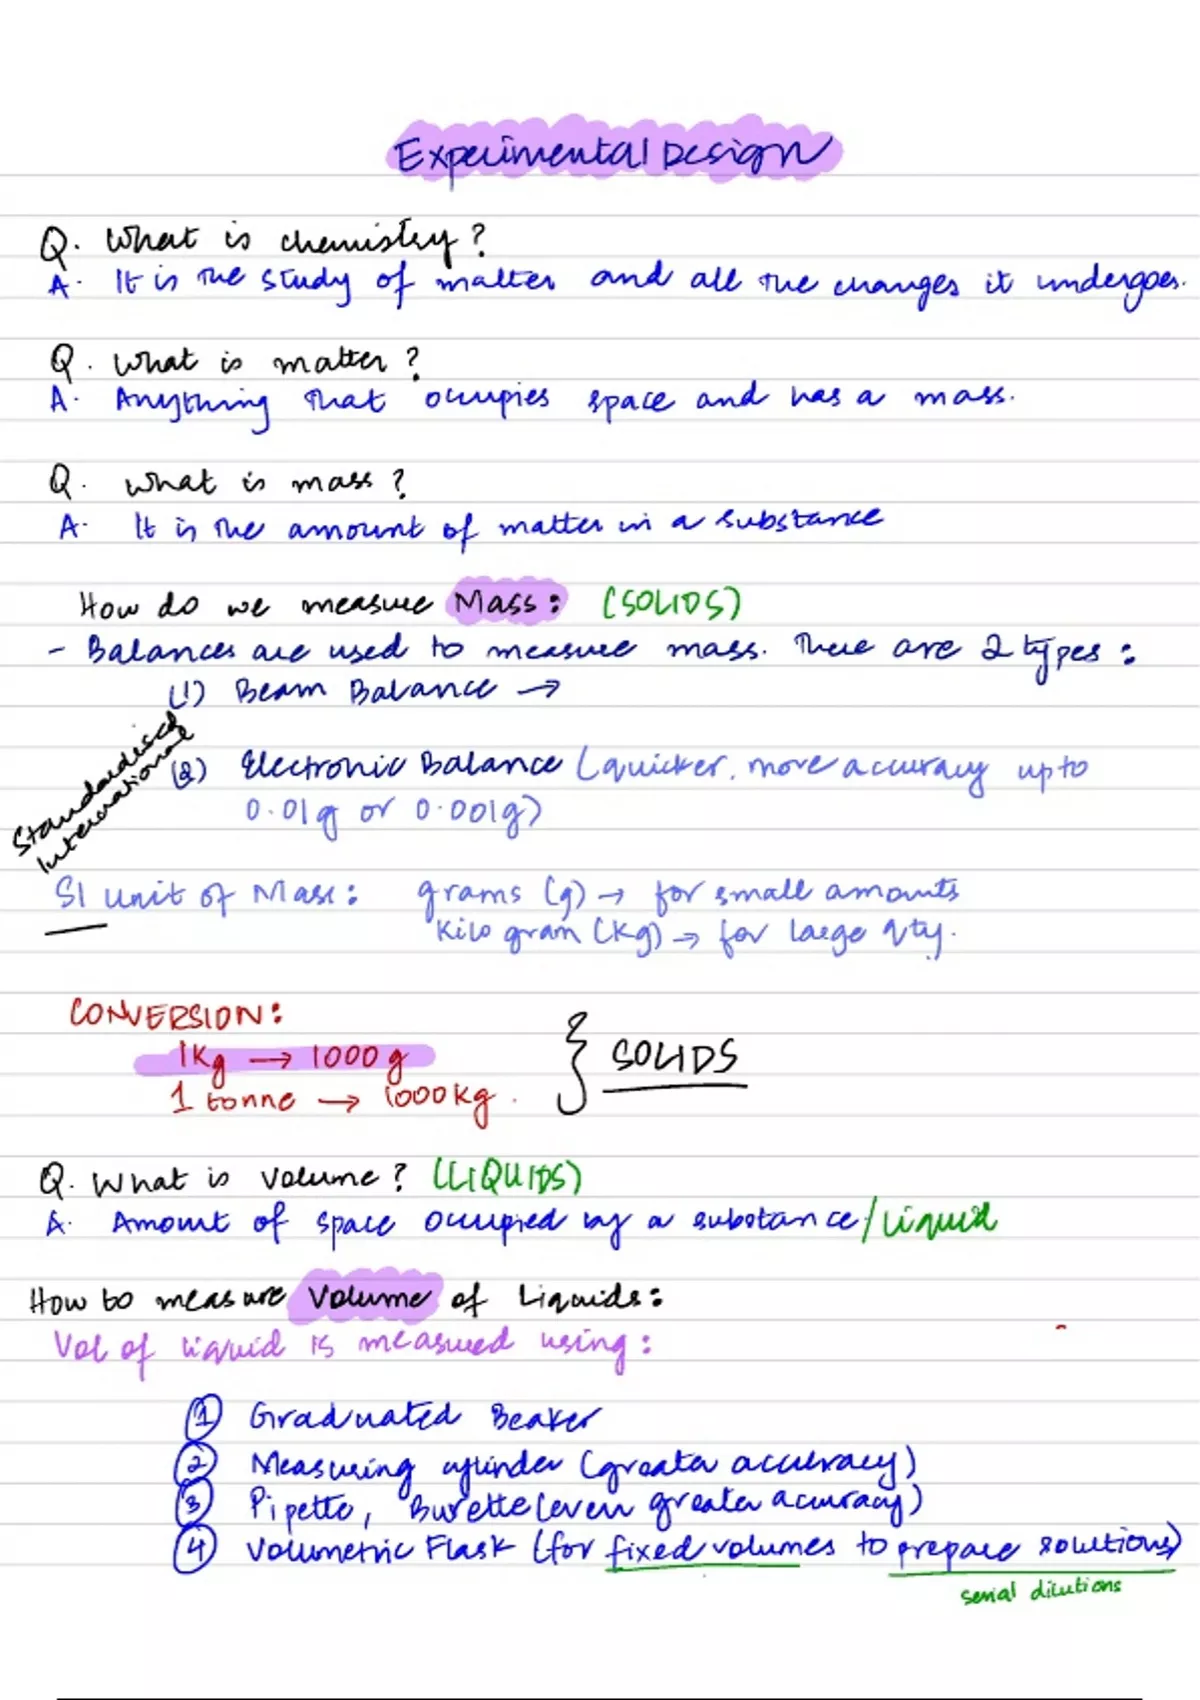 Experimental Design
Q. What is chemistry?
A. It is the study of matter and all the changes it undergoes.
Q. What is matter?
A. Anything that occupies space and has a mass.
Q. What is mass?
A. It is the amount of matter in a substance
How do we measure Mass: (SOLIDS)
- Balances are used to measure mass. There are 2 types:
(1) Beam Balance →
Standardised
International
(2) Electronic Balance (quicker, more accuracy up to
0.01g or 0.001g)
SI Unit of Mass: grams (g) → for small amounts
Kilo gram (Kg) → for large qty.
CONVERSION:
1Kg → 1000g
1 tonne → 1000kg.
} SOLIDS
Q. What is volume? (LIQUIDS)
A. Amount of space occupied by a substance/liquid
How to measure Volume of Liquids:
Vol of liquid is measured using:
① Graduated Beaker
② Measuring cylinder (greater accuracy)
③ Pipette, Burette (even greater accuracy)
④ Volumetric Flask (for fixed volumes to prepare solutions)
serial dilutions